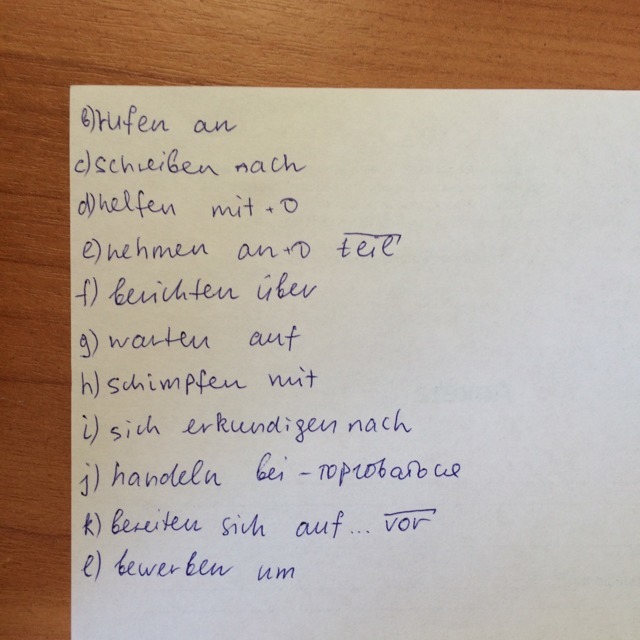 b) rufen an
c) schreiben nach
d) helfen mit + D
e) nehmen an + D teil
f) berichten über
g) warten auf
h) schimpfen mit
i) sich erkundigen nach
j) handeln bei - торговаться
k) bereiten sich auf... vor
l) bewerben um